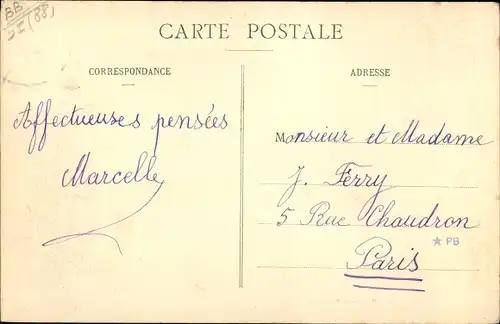 BB
DI (88)
CARTE POSTALE
CORRESPONDANCE
Affectueuses pensées
Marcelle
ADRESSE
Monsieur et Madame
J. Ferry
5 Rue Chaudron
★ PB
Paris